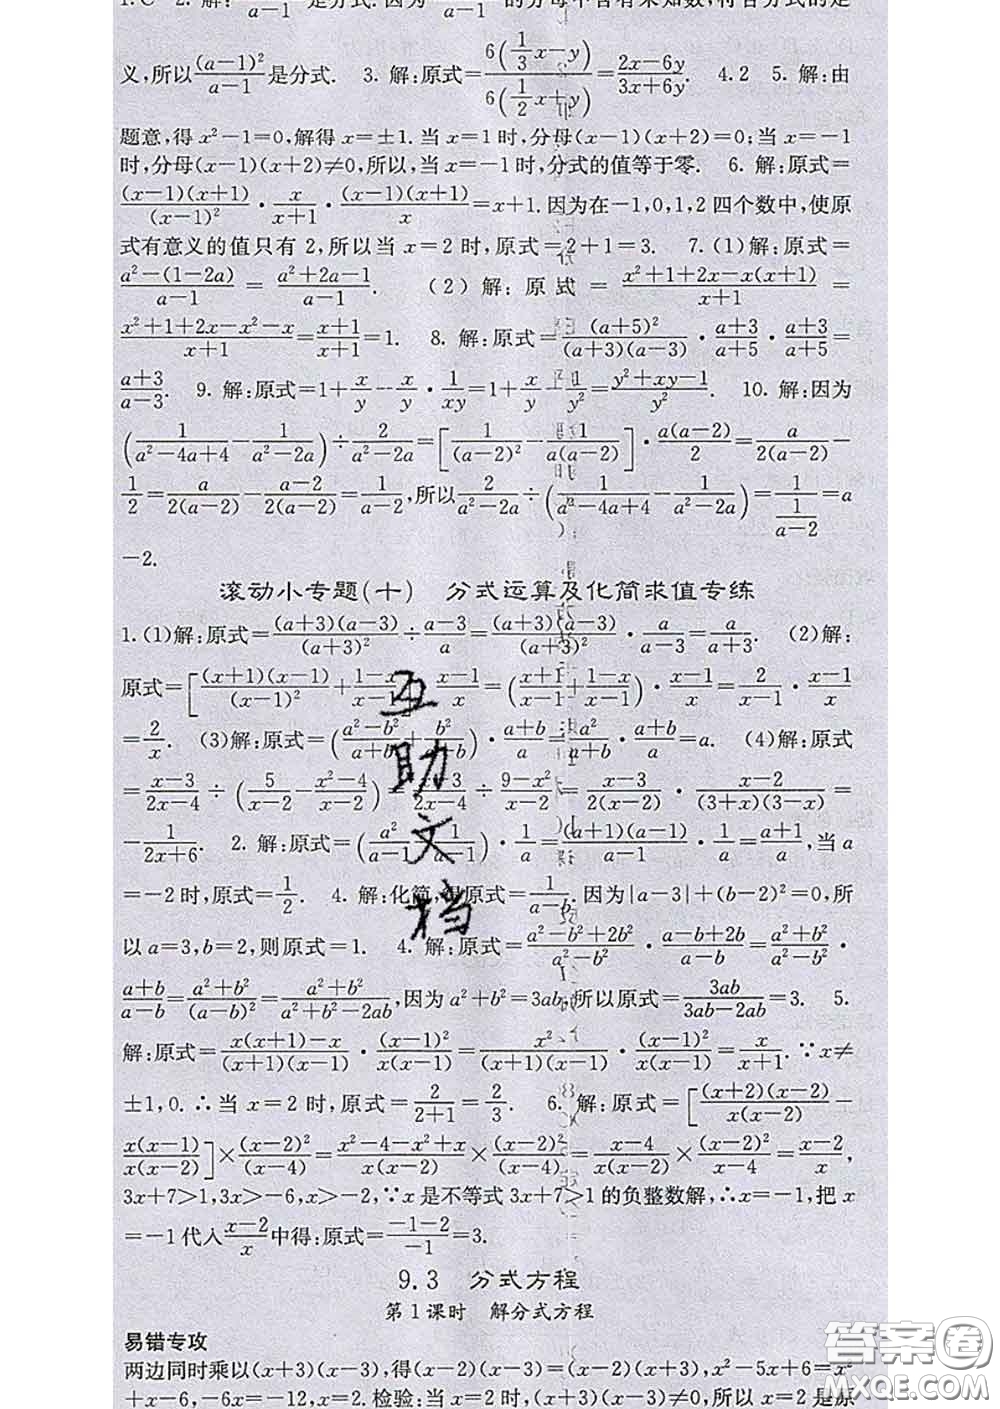 1. C 2. 解: /(a−1) 是分式. 因为 /(a−1) 的分母中含有未知数, 符合分式的定
义,所以(a−1)²/(a−1)是分式. 3. 解:原式=6(1/3x−y)/6(1/2x+y)=(2x−6y)/(3x+6y). 4. 2 5. 解:由
题意,得 x²−1=0,解得 x=±1. 当 x=1 时,分母(x−1)(x+2)=0;当 x=−1
时,分母(x−1)(x+2)≠0,所以,当 x=−1 时,分式的值等于零. 6. 解:原式=
(x−1)(x+1)/(x−1)² · x/(x+1) · (x−1)(x+1)/x=x+1. 因为在−1,0,1,2 四个数中,使原
式有意义的值只有 2,所以当 x=2 时,原式=2+1=3. 7. (1)解:原式=
(a²−(1−2a))/(a−1) = (a²+2a−1)/(a−1). (2)解:原式=(x²+1+2x−x(x+1))/(x+1)=
(x²+1+2x−x²−x)/(x+1)=(x+1)/(x+1)=1. 8. 解:原式=(a+5)²/((a+3)(a−3)) · (a+3)/(a+5) · (a+3)/(a+5)=
(a+3)/(a−3). 9. 解:原式=1+x/y−x/y · 1/(xy)=1+x/y−1/y²=(y²+xy−1)/y². 10. 解:因为
(1/(a²−4a+4)−1/(a²−2a))÷2/(a²−2a)=[1/(a−2)²−1/(a(a−2))] · a(a−2)/2=a/(2(a−2))−
1/2=a/(2(a−2))−(a−2)/(2(a−2))=1/(a−2),所以2/(a²−2a)÷(1/(a²−4a+4)−1/(a²−2a))=1/(1/(a−2))=a
−2.
滚动小专题(十) 分式运算及化简求值专练
1. (1)解:原式=(a+3)(a−3)/(a+3)²÷(a−3)/a=(a+3)(a−3)/(a+3)² · a/(a−3)=a/(a+3). (2)解:
原式=[(x+1)(x−1)/(x−1)²+(1−x)/(x−1)] · (x−1)/x=((x+1)/(x−1)+(1−x)/(x−1)) · (x−1)/x=2/(x−1) · (x−1)/x
=2/x. (3)解:原式=((a²−b²)/(a+b)+b²/(a+b)) · (a+b)/a=a²/(a+b) · (a+b)/a=a. (4)解:原式
=(x−3)/(2x−4)÷(5/(x−2)−(x²−4)/(x−2))=(x−3)/(2x−4)÷(9−x²)/(x−2)=(x−3)/(2(x−2)) · (x−2)/((3+x)(3−x))=
−1/(2x+6). 2. 解:原式=(a²/(a−1)−1/(a−1)) · 1/a=(a+1)(a−1)/(a−1) · 1/a=(a+1)/a,当 a
=−2 时,原式=1/2. 4. 解:化简,得原式=1/(a−b). 因为|a−3|+(b−2)²=0,所
以 a=3,b=2,则原式=1. 4. 解:原式=(a²−b²+2b²)/(a²−b²) · (a−b+2b)/(a−b)=(a²+b²)/(a²−b²) ·
(a+b)/(a−b)=(a²+b²)/(a−b)²=(a²+b²)/(a²+b²−2ab),因为 a²+b²=3ab,所以原式=3ab/(3ab−2ab)=3. 5.
解:原式=(x(x+1)−x)/((x+1)(x−1)) · (x−1)²/(x(x−1))=x²/((x+1)(x−1)) · (x−1)²/(x(x−1))=x/(x+1). ∵x≠
±1,0. ∴当 x=2 时,原式=2/(2+1)=2/3. 6. 解:原式=[(x+2)(x−2)/(x(x−2))−
x(x−1)/(x(x−2))]×(x−2)²/(x−4)=(x²−4−x²+x)/(x(x−2))×(x−2)²/(x−4)=(x−4)/(x(x−2))×(x−2)²/(x−4)=(x−2)/x,
3x+7>1,3x>−6,x>−2,∵x 是不等式 3x+7>1 的负整数解,∴x=−1,把 x
=−1 代入(x−2)/x中得:原式=(−1−2)/(−1)=3.
9.3 分式方程
第 1 课时 解分式方程
易错专攻
两边同时乘以(x+3)(x−3),得(x−2)(x−3)=(x−2)(x+3),x²−5x+6=x²
+x−6,−6x=−12,x=2. 检验:当 x=2 时,(x+3)(x−3)≠0,所以 x=2 是原
互助文档
答案圈
MXQE.COM